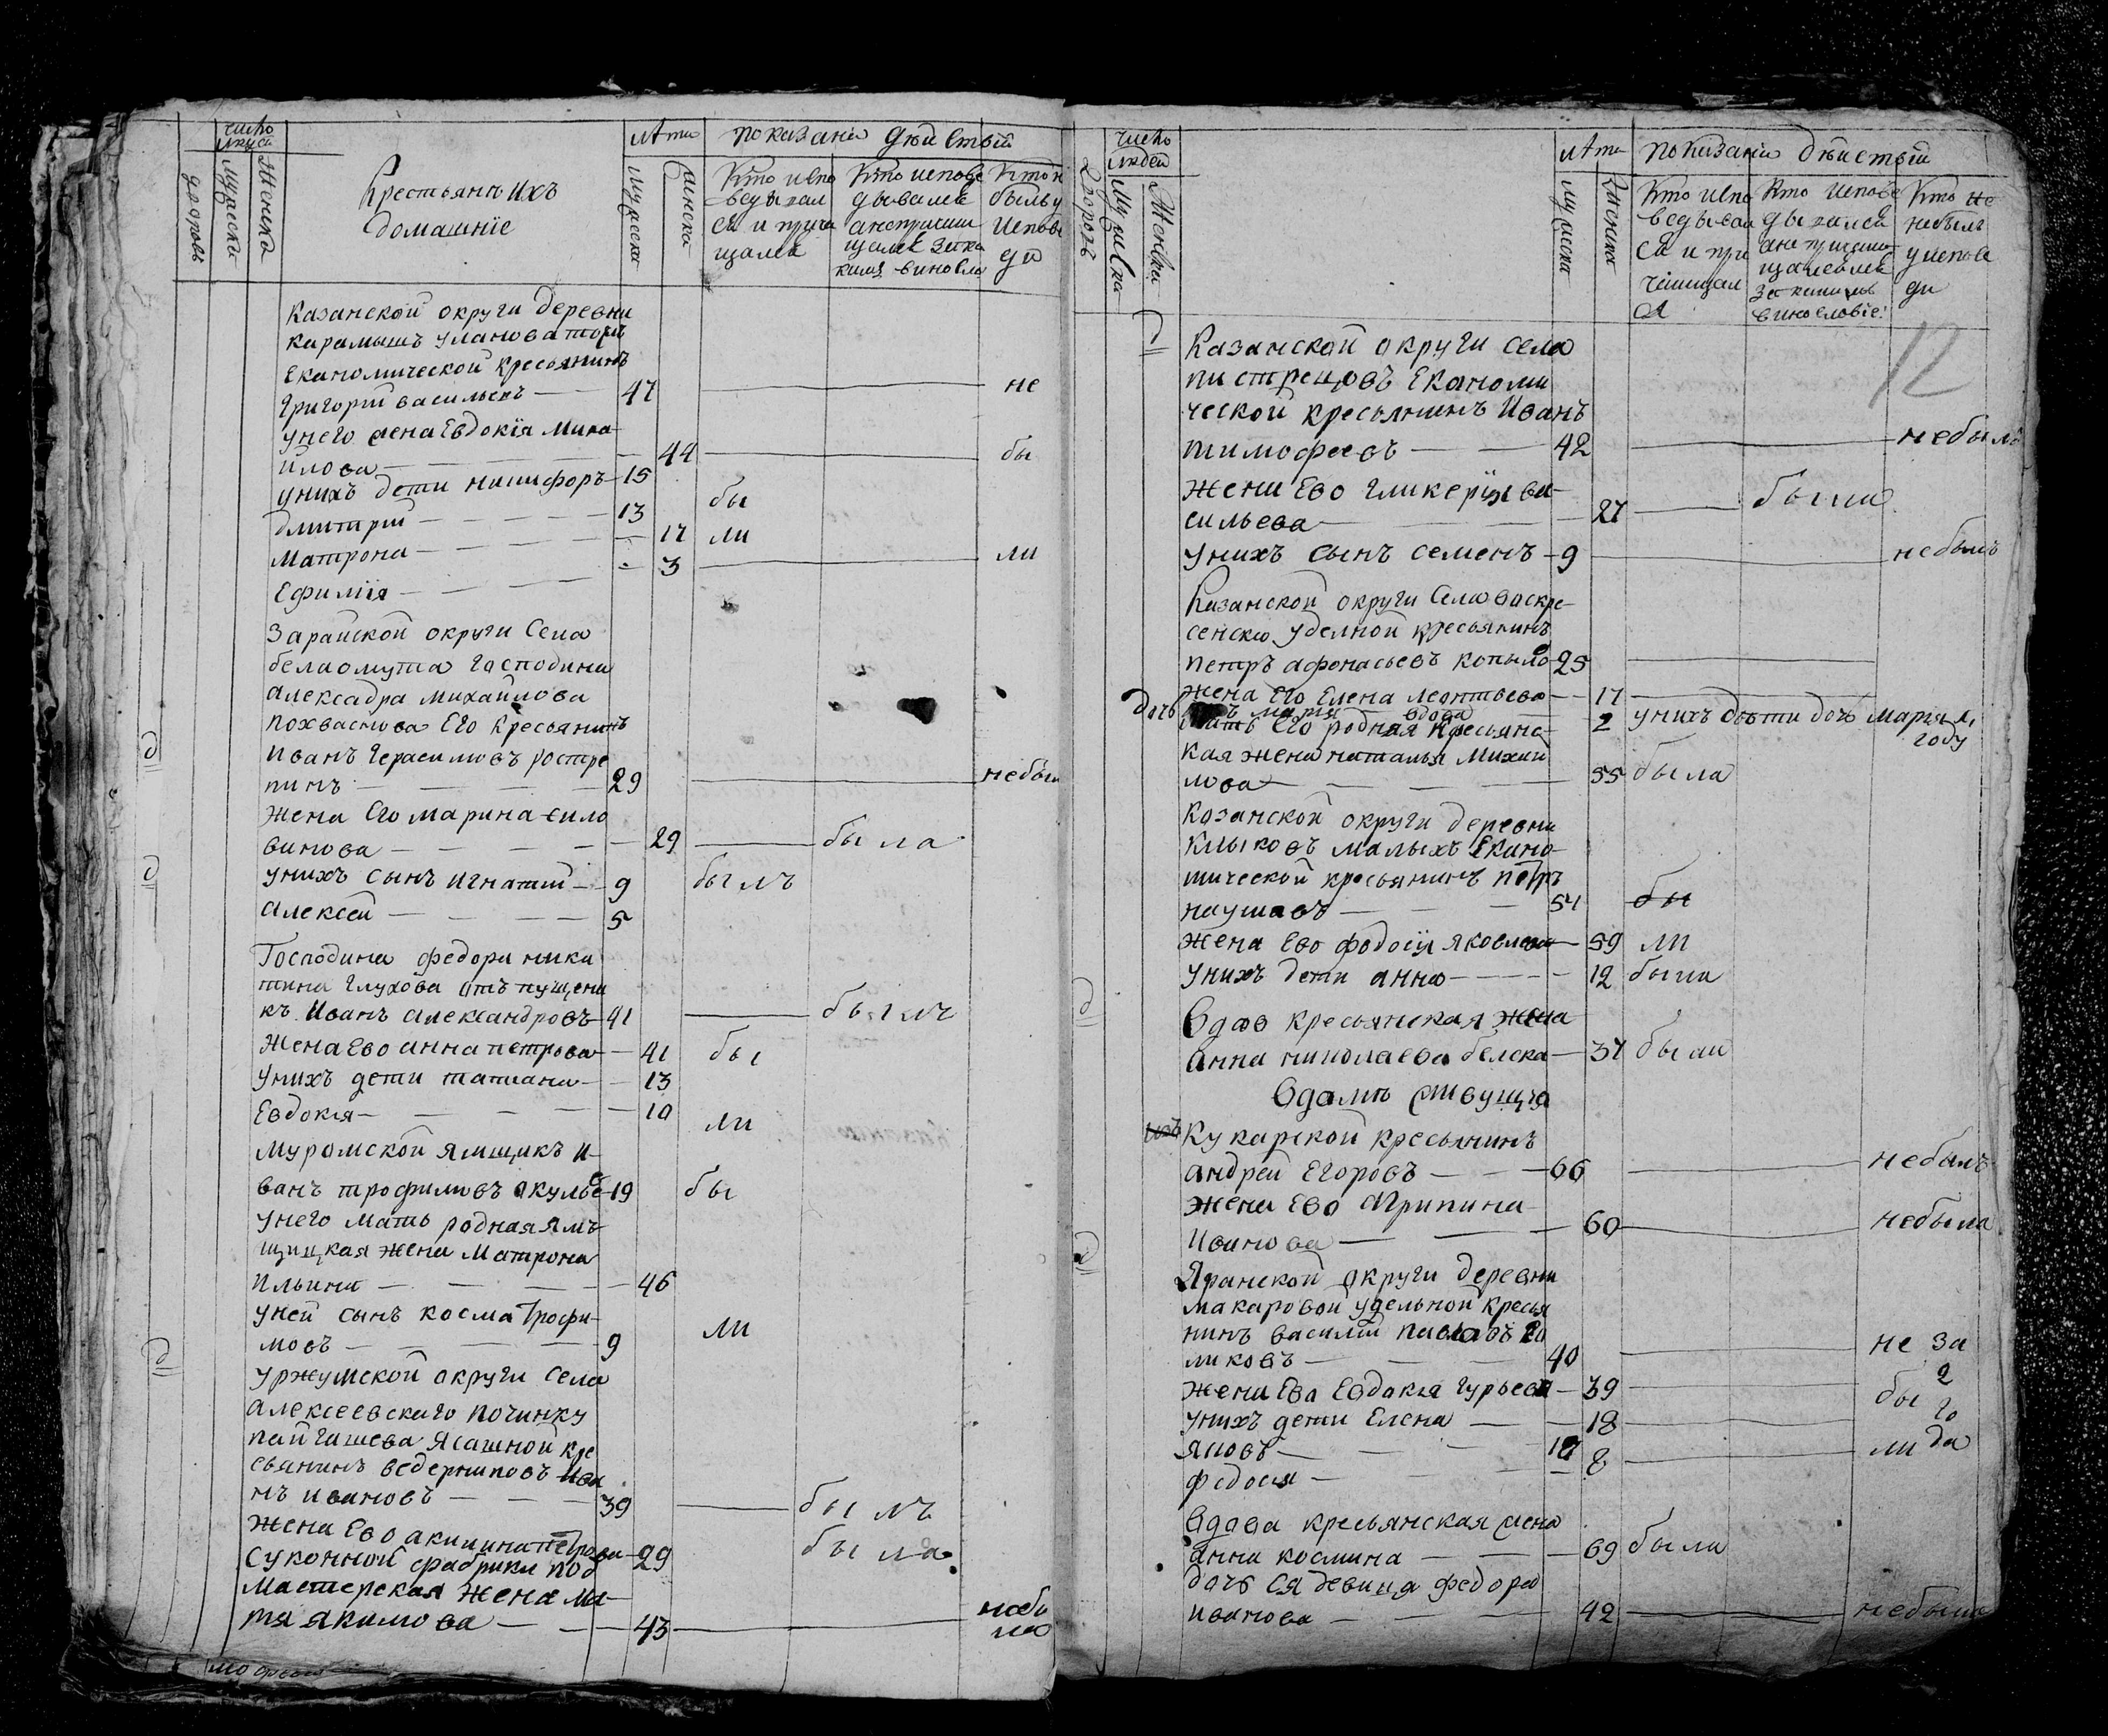 число
людей
дворовъ
мужеска
женска
Крестьянѣ ихъ
домашніе
лѣта
мужеска
женска
показаніи дѣйствій
Кто испо
ведывал
ся и прича
щался
Кто испове
дывался
а не причи
щался за ка
кимъ виносло
Кто н
былъ у
испове
ди
Казанской округи деревни
Економической кресьянинъ
Григорій васильевъ — 47 не
у него жена Евдокія Миха
йлова — 44 бы
у нихъ дети никифоръ 15
бы
дмитрій — 13
17 ли
Матрона — 3 ли
Ефимія —
Зарайской округи Села
белаомута Господина
Алексадра михайлова
похваснова Его Кресьянинъ
Иванъ Герасимовъ ростре
пинъ — 29 небы
жена Его Марина сило
ванова — 29 была
у нихъ сынъ игнатій — 9 былъ
Алексей — 5
Господина федора ники
тина Глухова отъпущени
къ Иванъ Александровъ 41 былъ
жена Ево анна петрова — 41 бы
у нихъ дети татиана — 13
Евдокія — 10 ли
Муромской Ямщикъ И
ванъ трофимовъ акулье 19 бы
у него мать родная ямъ
щицкая жена Матрона
Ильина — 46
у ней сынъ косма Трофи
мовъ — 9 ли
Уржумской округи села
Алексеевскаго починку
пайгишева Ясашной кре
сьянинъ ведерниковъ Ива
нъ ивановъ — 39 былъ
жена Ево акилина петрова 29 была
Суконной фабрики под
Мастерская жена Ма
тя якимова — 43 небы
ла
число
людей
дворовъ
мужеска
женска
лѣта
мужеска
женска
показаніи дѣйствій
Кто испо
ведывал
ся и при
чащал
ся
Кто испове
дывался
а не прича
щался
за какимъ
винословіе
Кто не
небылъ
у испове
ди
12
Казанской округи села
пистрецовъ Економи
ческой кресьянинъ Иванъ
тимофеевъ — 42 небылъ
жена Ево гликерія ва
сильева — 27 была
у нихъ сынъ семенъ — 9 небылъ
Казанской округи Села васкре
сенска уделной кресьянинъ
петръ афонасьевъ копыло 25
жена Его Елена леонтьева — 17
дочь марія вдова 2 у нихъ дѣти дочь Марья
году
мать Его родная кресьянс
кая жена наталья Михай
лова — 55 была
Казанской округи деревни
Клыковъ малыхъ Екано
мической кресьянинъ петръ
наумовъ — 54 бы
жена Ево федосія яковлева — 59 ли
у нихъ дети анна — 12 была
Вдов кресьянская жена
анна николаева белска — 37 была
Вдамѣ ствующия
Кукарской кресьянинъ
андрей Егоровъ — 66 небылъ
жена Ево Агрипина
Иванова — 60 небыла
Яранской округи деревни
макаровой удельной кресья
нинъ василій павловъ го
ликовъ — 40 не за
жена Ева Евдокія гурьева — 39 бы 2
у нихъ дети Елена — 18 го
яковъ — 8 ли да
федосія —
Вдова кресьянская жена
анна космина — 69 была
дочь ся девица федора
иванова — 42 небыла